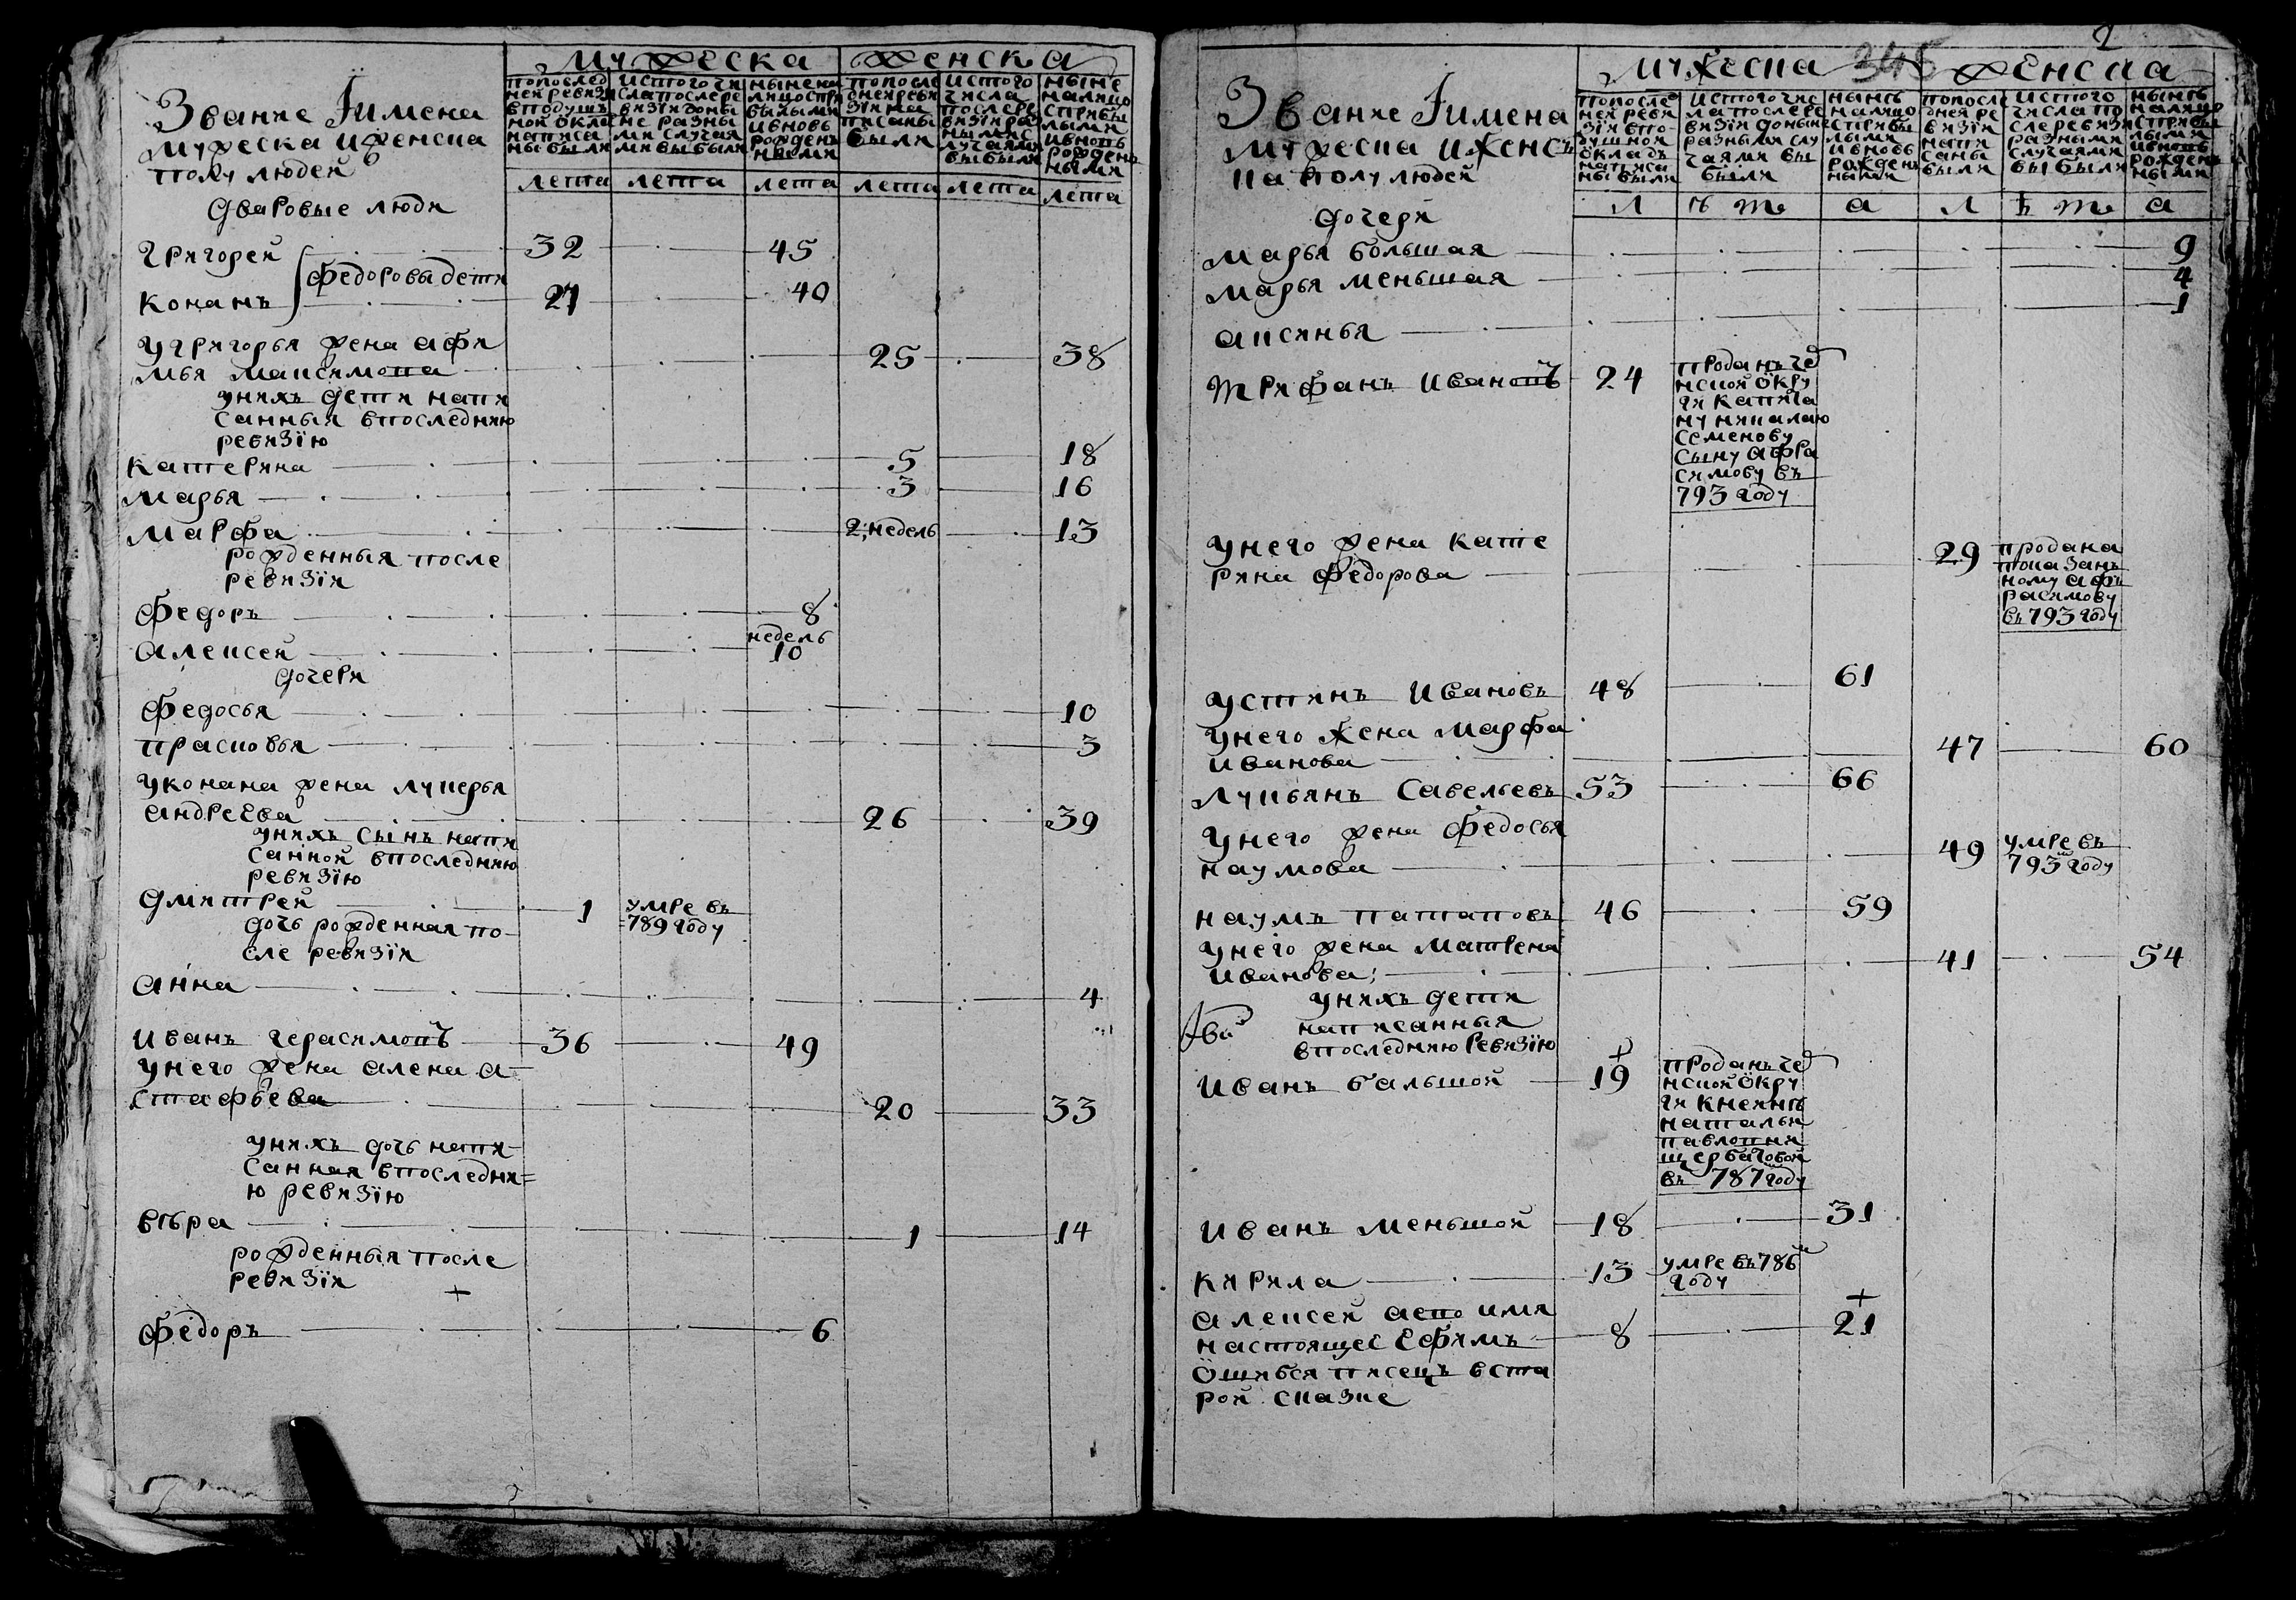 мужеска женска
Звание Iимена
мужеска иженска
полу людей
попослед
ней ревизи
вподушъ
ной окла
написа
ны были
истого чи
сла после ре
визіи доны
не разны
ми случая
ми выбыли
ныне на
лицо с при
былыми
ивновь
рожден
ными
попосле
дней реви
зіи на
писаны
были
истого
числа
после ре
визіи раз
ными с
лучаями
выбыли
ныне
налицо
сприбы
лыми
ивновь
рожден
ными
лета лета лета лета лета лета
дваровые люди
григорей 32 45
федоровы дети
конанъ 27 40
угригорья жена афи
мья максимова 25 38
унихъ дети напи
санныя впоследнюю
ревизiю
катерина 5 18
марья 3 16
марфа 2 недель 13
рожденныя после
ревизiи
федоръ 8
алексей недель 10
дочери
федосья 10
прасковья 3
уконана жена лукерья
андреева 26 39
унихъ сынъ напи
санной впоследнюю
ревизiю
дмитрей 1 умре въ
789 году
дочь рожденная по-
сле ревизiи
анна 4
иванъ герасимовъ 36 49
унего жена алена а-
стафьева 20 33
унихъ дочь напи-
санная впоследню-
ю ревизiю
вѣра 1 14
рожденныя после
ревизiи
+
федоръ 6
2
мужеска 345 женска
Звание Iимена
мужеска иженсъ
ка полу людей
попосле
ней реви
зiи впо-
душной
окладъ
написа
ны были
истого чис
ла после ре
визiи доныне
разными слу
чаями вы
были
нынѣ
налицо
сприбы
лыми
ивновь
рожден
ными
попосле
дней ре
визiи
напи
саны
были
истого
числа по
сле ревизи
разными
случаями
выбыли
нынѣ
налицо
сприбы
лыми
ивновь
рожден
ными
л ѣ т а л ѣ т а
дочери
марья большая 9
марья меньшая 4
аксинья 1
трифанъ ивановъ 24 проданъ че
нской окру
ги капита
ну николаю
семенову
сыну афра
симову въ
793 году
унего жена кате
рина федорова 29 продана
показан
ному афъ
расимову
въ 793 году
устинъ ивановъ 48 61
унего жена марфа
иванова 47 60
лукьянъ савельевъ 53 66
унего жена федосья
наумова 49 умре въ
793 году
наумъ патаповъ 46 59
унего жена матрена
иванова 41 54
унихъ дети
написанныя
впоследнюю ревизiю
иванъ бальшой 19 проданъ че
нской окру
ги княинѣ
натальи
павловни
щербатовой
въ 787 году
иванъ меньшой 18 31
кирила 13 умре въ 786
году
+
алексей аево имя
настоящее ефимъ 8 21
ошибся писецъ вста
рой сказке